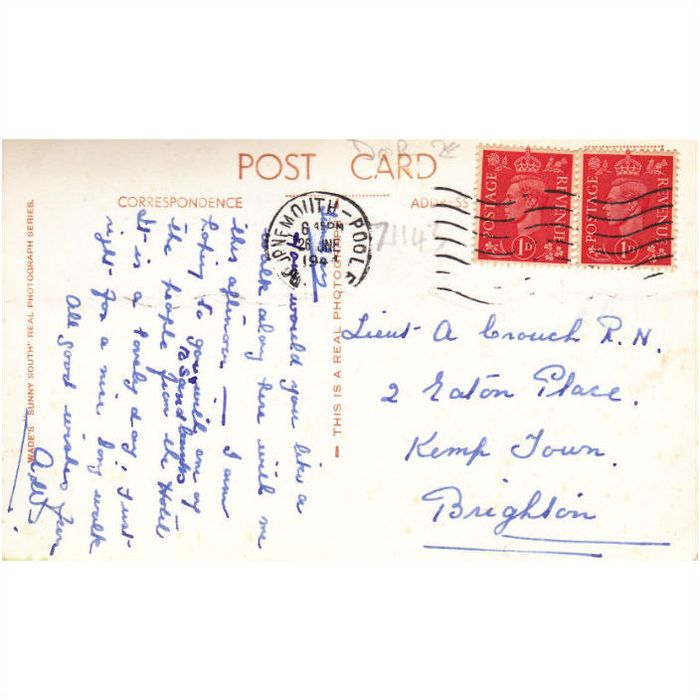 POST CARD
CORRESPONDENCE
ADDRESS
WADE'S "SUNNY SOUTH" REAL PHOTOGRAPH SERIES.
THIS IS A REAL PHOTOGRAPH
BOURNEMOUTH-POOLE
6 45PM
26 JNE
POSTAGE REVENUE
1D
POSTAGE REVENUE
1D
71143
would you like a
walk along here with me
this afternoon — I am
hoping to go with one of
to Sandbanks
the people from the Hotel
It is a lovely day, Just
right for a nice long walk
All good wishes from
Lieut A Crouch R.N.
2 Eaton Place.
Kemp Town.
Brighton